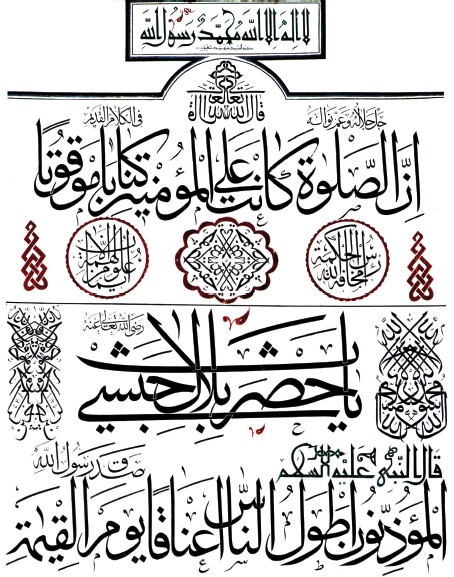 لا اله الا الله محمد رسول الله
قال الله تعالى
جل جلاله وعم نواله
في الكلام القديم
ان الصلوة كانت على المؤمنين كتابا موقوتا
رأس الحكمة مخافة الله
علو الهمة من الايمان
رضي الله تعالى عنه
يا حضرت بلال حبشي
قال النبي عليه السلام
صدق رسول الله
المؤذنون اطول الناس اعناقا يوم القيمة